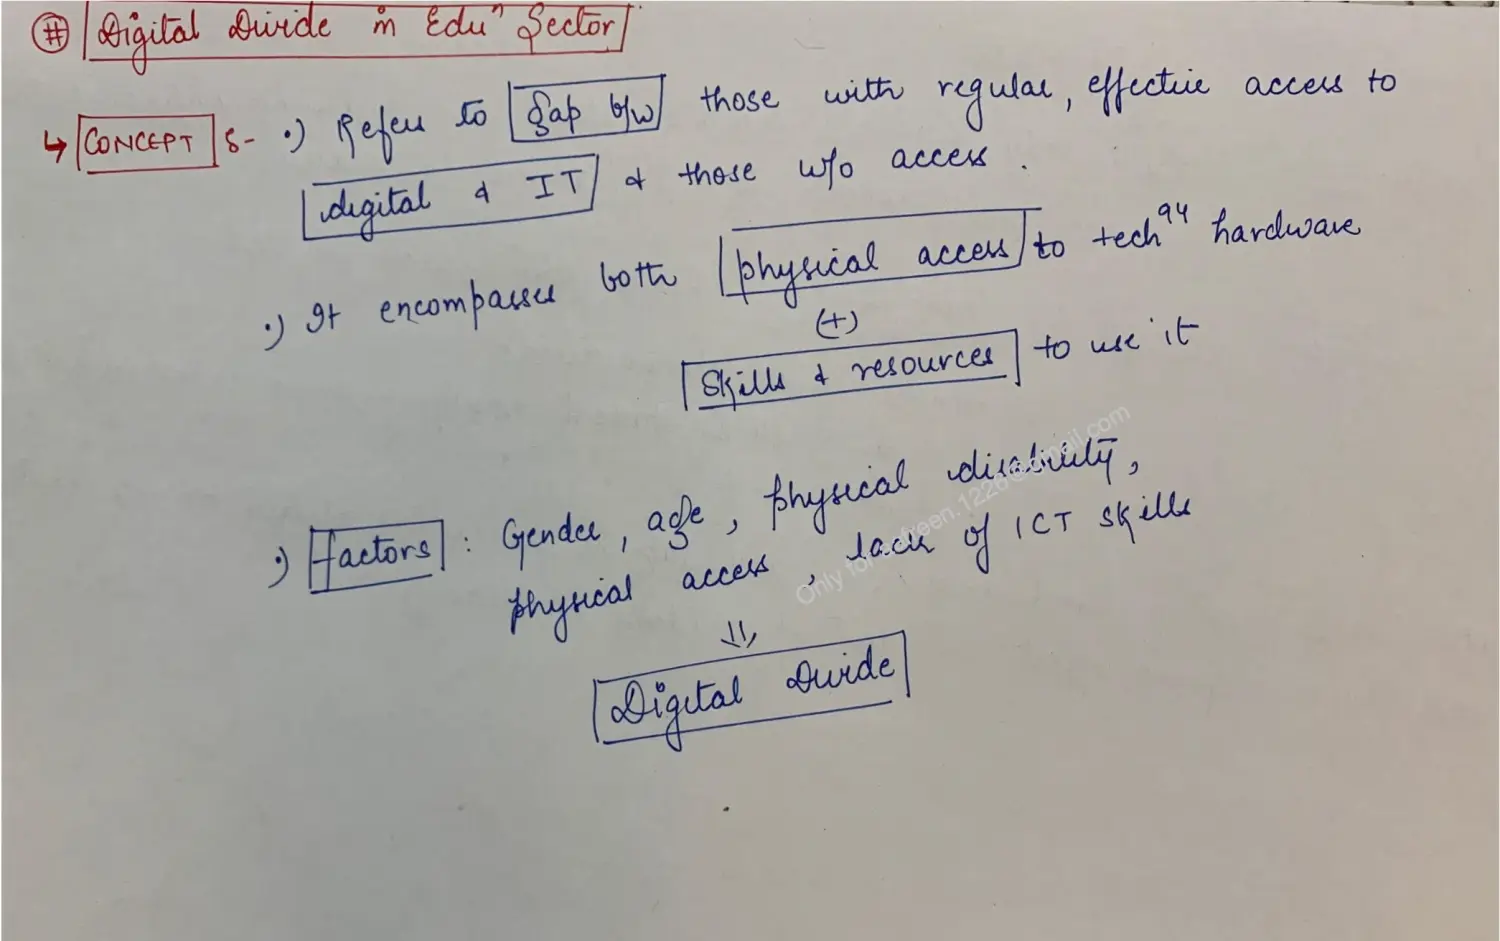 # Digital Divide in Eduⁿ Sector
↳ CONCEPT :- •) Refers to gap b/w those with regular, effective access to
digital & IT & those w/o access.
•) It encompasses both physical access to tech hardware
(+)
Skills & resources to use it
•) Factors : Gender, age, physical disability,
physical access, lack of ICT skills
⇓
Digital Divide
Only for